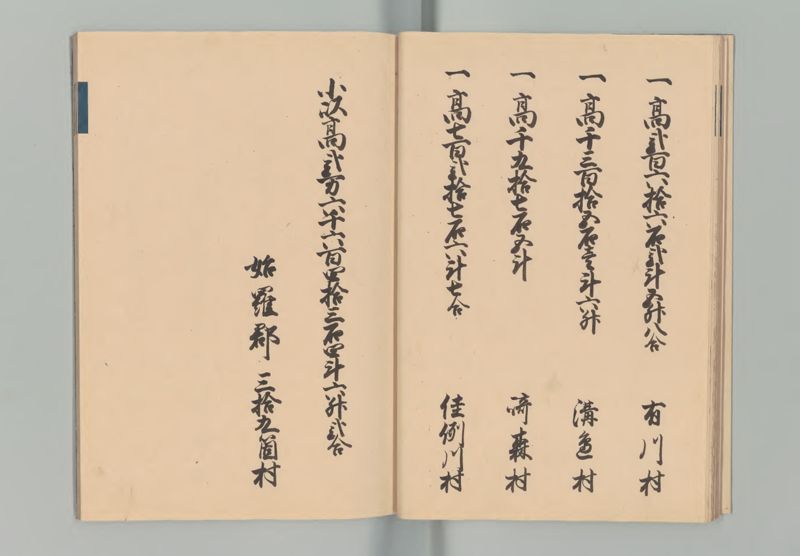 一高弐百六拾六石弐斗五升八合 有川村
一高千三百拾五石壱斗六升 溝邉村
一高千九拾七石五斗 崎森村
一高七百弐拾七石六斗七合 佳例川村
小以高弐万六千六百四拾三石四斗六升弐合
始羅郡 三拾九箇村